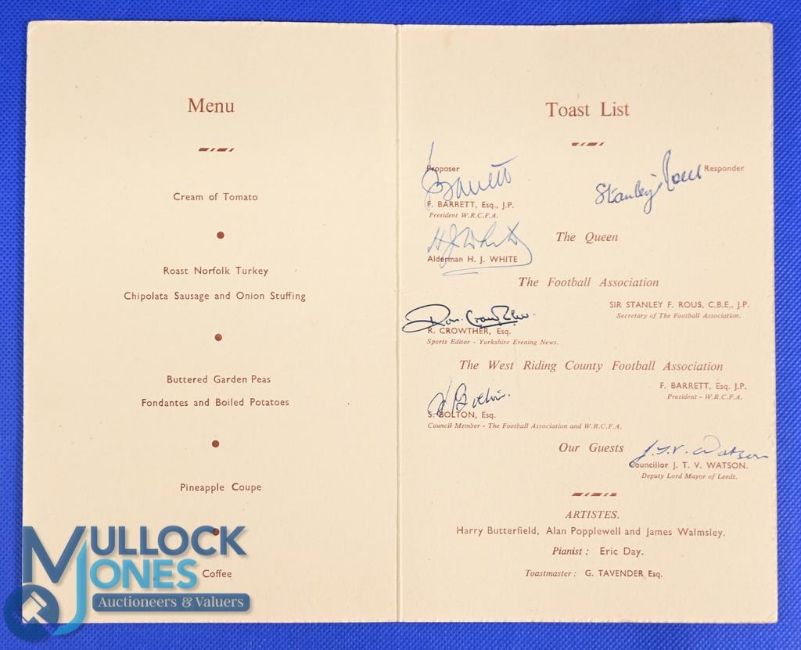 Menu
Cream of Tomato
Roast Norfolk Turkey
Chipolata Sausage and Onion Stuffing
Buttered Garden Peas
Fondantes and Boiled Potatoes
Pineapple Coupe
Coffee
Toast List
Proposer
Responder
Barrett
Stanley Rous
F. BARRETT, Esq., J.P.
President W.R.C.F.A.
The Queen
H J White
Alderman H. J. WHITE
The Football Association
SIR STANLEY F. ROUS, C.B.E., J.P.
Secretary of The Football Association.
Ron. Crowther.
R. CROWTHER, Esq.
Sports Editor - Yorkshire Evening News.
The West Riding County Football Association
F. BARRETT, Esq. J.P.
President - W.R.C.F.A.
S. Bolton.
S. BOLTON, Esq.
Council Member - The Football Association and W.R.C.F.A.
Our Guests
J.T.V. Watson
Councillor J. T. V. WATSON.
Deputy Lord Mayor of Leeds.
ARTISTES.
Harry Butterfield, Alan Popplewell and James Walmsley.
Pianist : Eric Day.
Toastmaster : G. TAVENDER, Esq.
MULLOCK
JONES
Auctioneers & Valuers